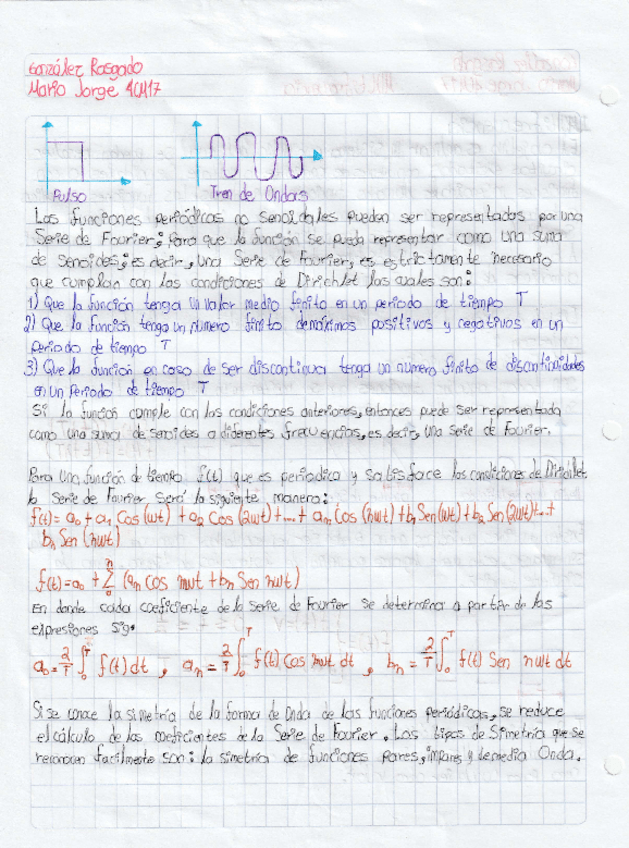 González Rosgado
Mario Jorge 4CM17
Pulso
Tren de Ondas
Las funciones periódicas no senoidales pueden ser representadas por una
Serie de Fourier; para que la función se pueda representar como una suma
de senoides; es decir, una Serie de Fourier, es estrictamente necesario
que cumplan con las condiciones de Dirichlet las cuales son:
1) Que la función tenga un valor medio finito en un periodo de tiempo T
2) Que la función tenga un número finito de máximos positivos y negativos en un
periodo de tiempo T
3) Que la función en caso de ser discontinua tenga un numero finito de discontinuidades
en un periodo de tiempo T
Si la función cumple con las condiciones anteriores, entonces puede ser representada
como una suma de senoides a diferentes frecuencias, es decir, una Serie de Fourier.
Para una función de tiempo f(t) que es periodica y satisface las condiciones de Dirichlet
la Serie de Fourier será la siguiente manera:
f(t) = a₀ + a₁ Cos (ωt) + a₂ Cos (2ωt) + ... + aₙ Cos (nωt) + b₁ Sen (ωt) + b₂ Sen (2ωt) + ... +
bₙ Sen (nωt)
f(t) = a₀ + Σ₀ⁿ (aₙ cos nωt + bₙ Sen nωt)
En donde cada coeficiente de la serie de Fourier se determina a partir de las
expresiones sig.
a₀ = 2/T ∫₀ᵀ f(t) dt , aₙ = 2/T ∫₀ᵀ f(t) Cos nωt dt , bₙ = 2/T ∫₀ᵀ f(t) Sen nωt dt
Si se conoce la simetría de la forma de Onda de las funciones periódicas, se reduce
el cálculo de los coeficientes de la Serie de Fourier. Los tipos de Simetría que se
reconocen facilmente son: la simetría de funciones pares, impares y de media Onda.